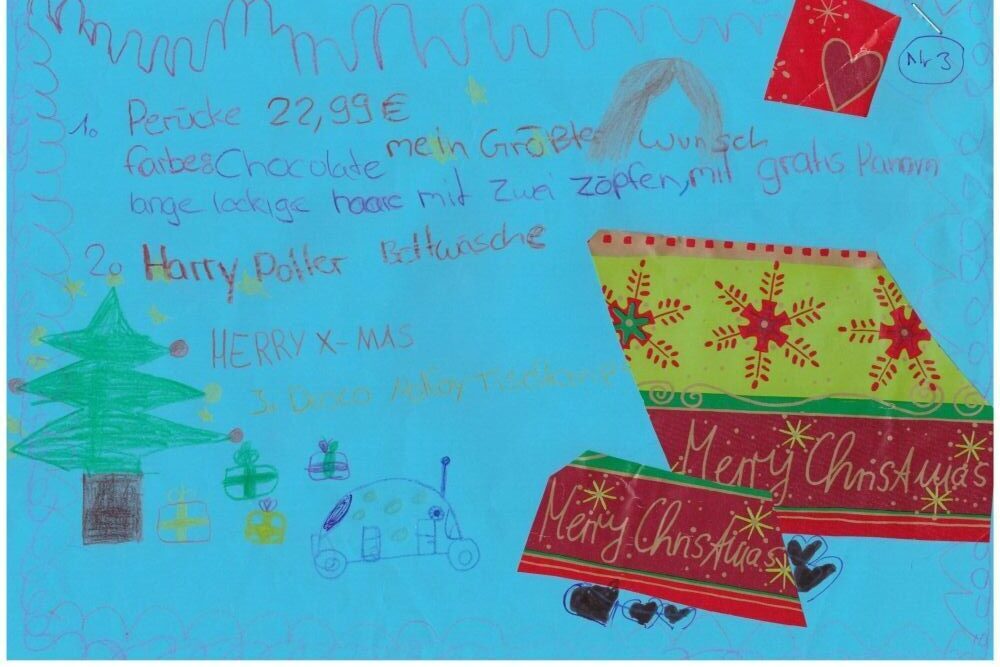 Nr 3
1. Perücke 22,99 €
mein Größter Wunsch
farbe: Chocolate
lange lockige haare mit zwei zöpfen, mit gratis
2. Harry Potter Bettwäsche
HERRY X-MAS
3. Disco
Merry Christmas
Merry Christmas